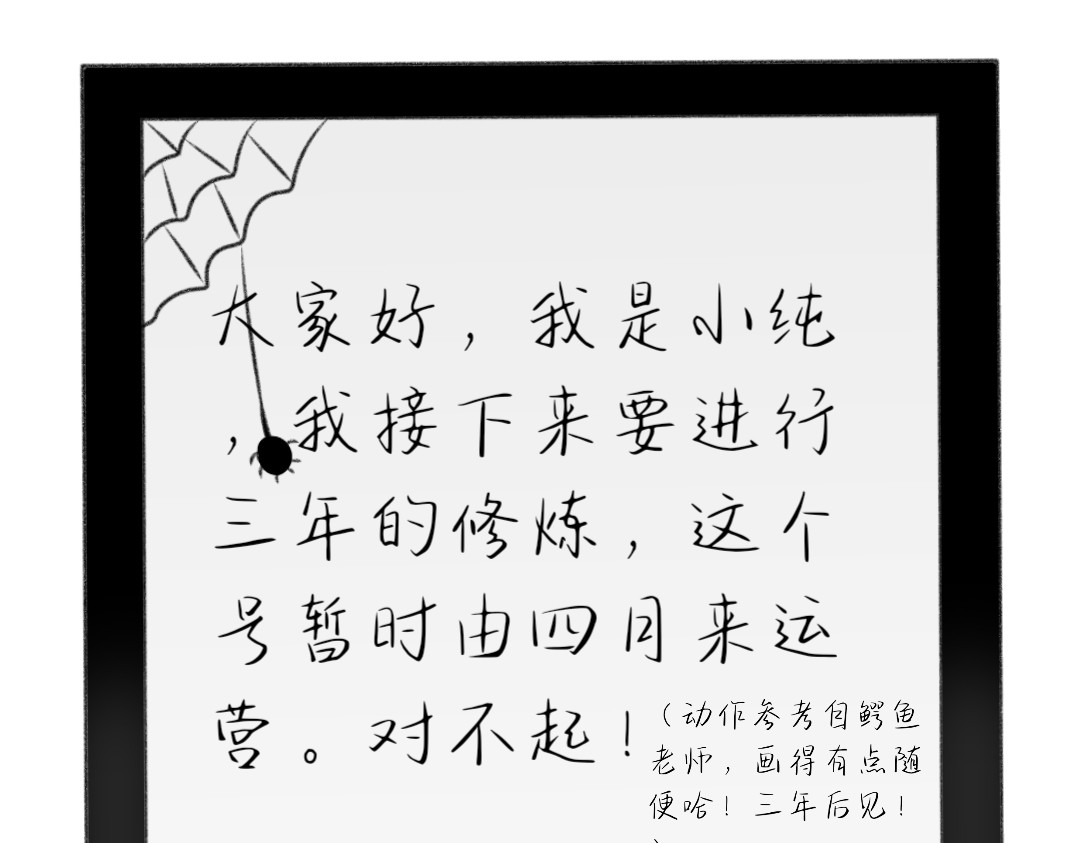 大家好，我是小纯
，我接下来要进行
三年的修炼，这个
号暂时由四月来运
营。对不起！
（动作参考自鳄鱼
老师，画得有点随
便哈！三年后见！
）